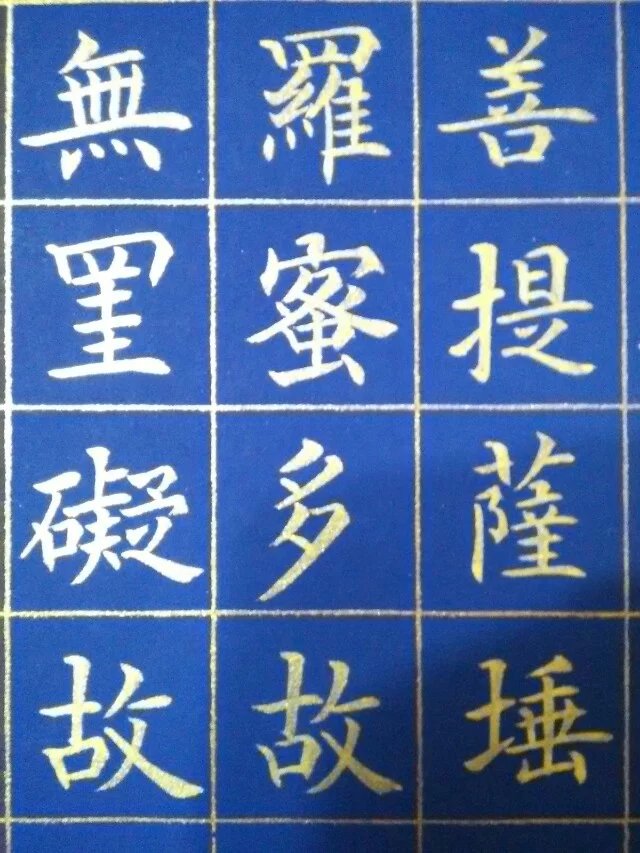 善提薩埵
羅蜜多故
無罣礙故